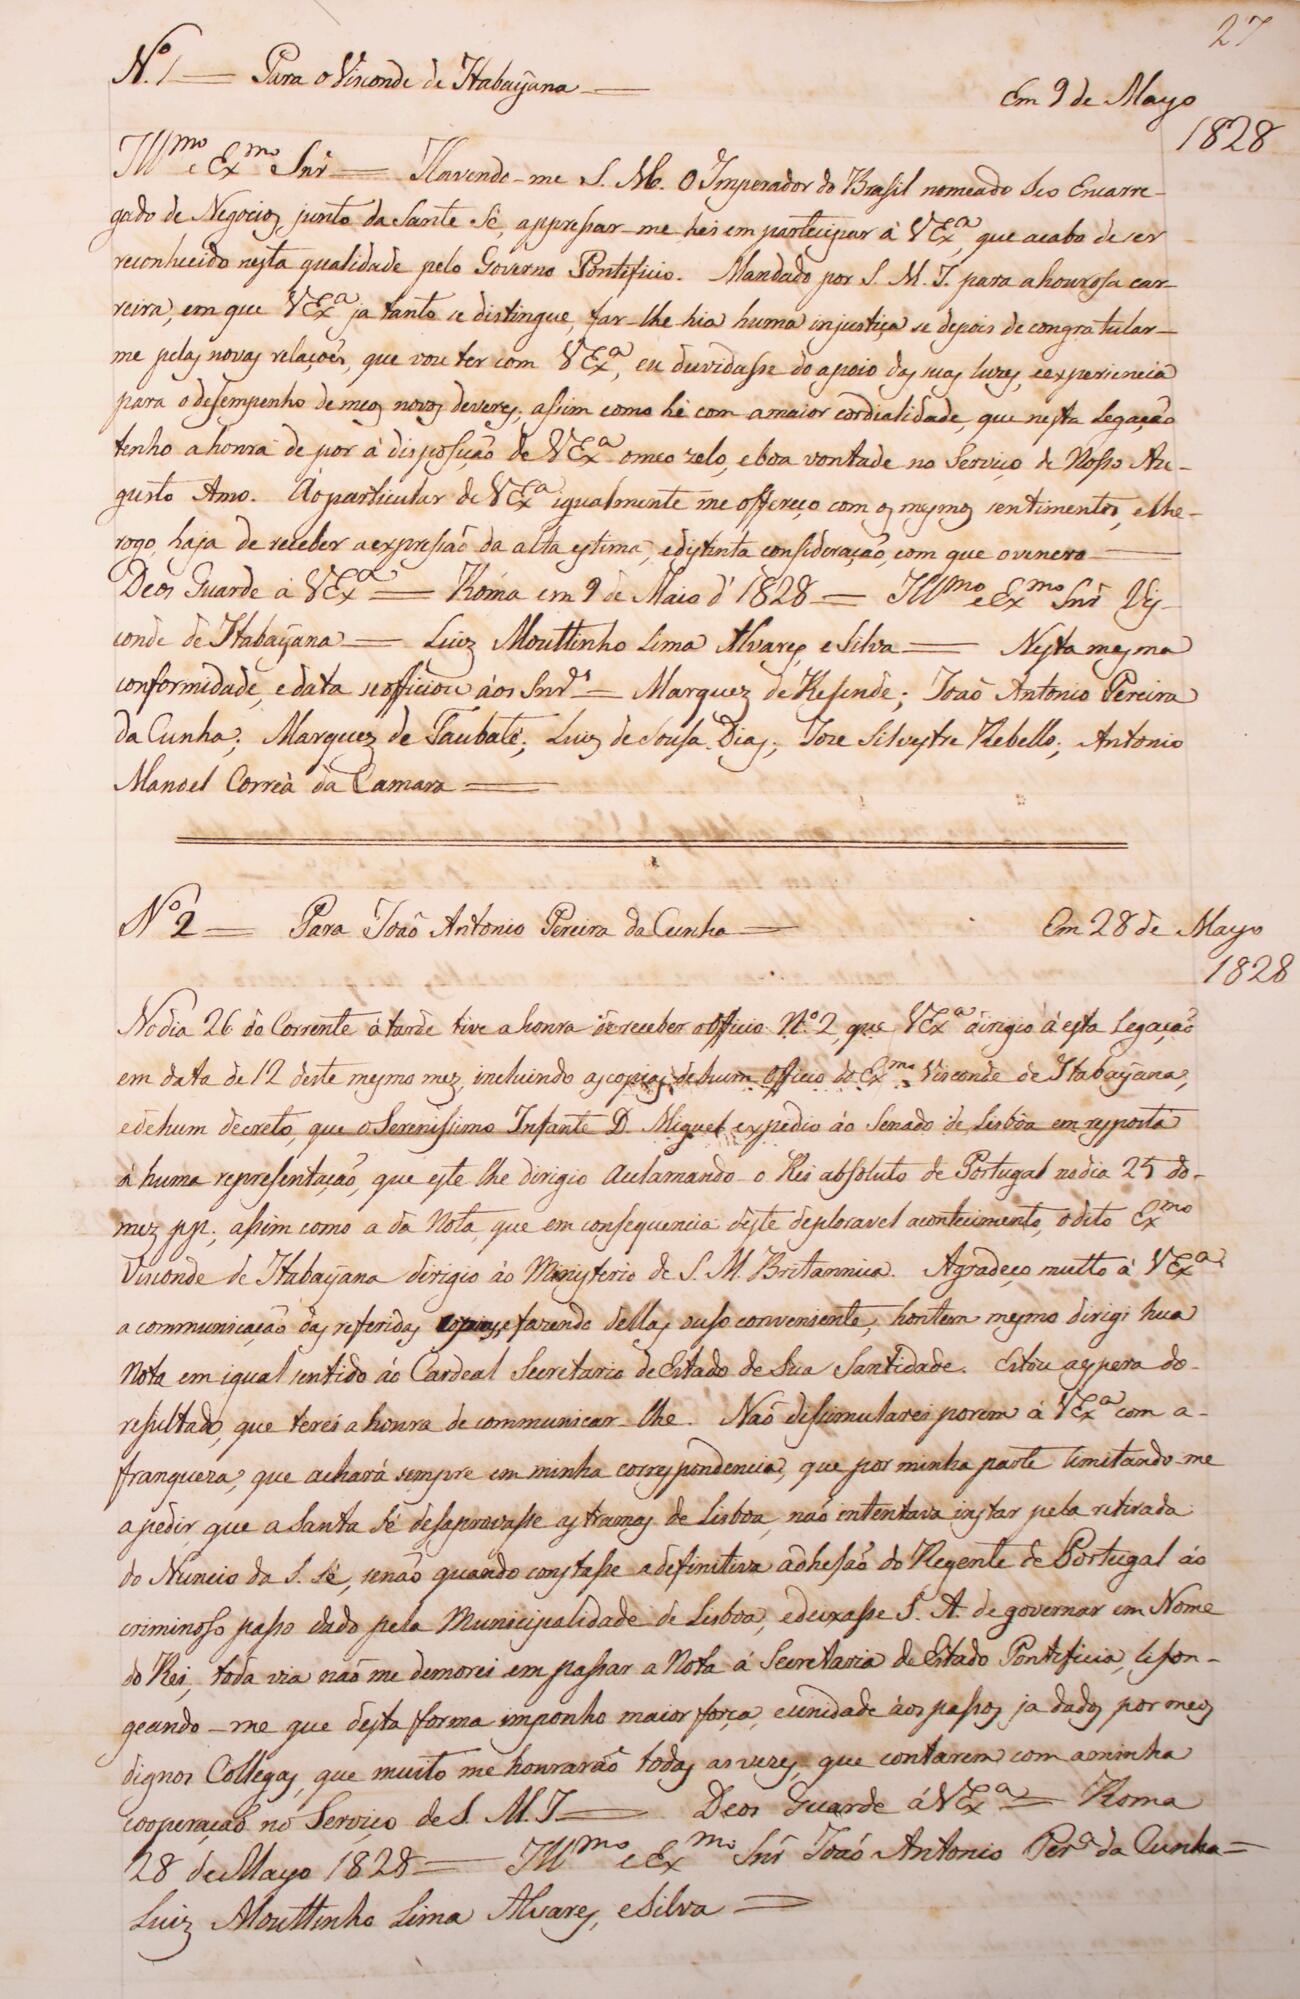 27
Nº 1 — Para o Visconde de Itabayana — Em 9 de Mayo
1828
Illmo e Exmo Snr — Havendo-me S. M. O Imperador do Brasil nomeado Seo Encarre-
gado de Negocios, junto da Santa Sé, appressar-me hei em participar á VExa, que acabo de ser
reconhecido nesta qualidade pelo Governo Pontificio. Mandado por S. M. I. para a hourosa car-
reira, em que VExa ja tanto se distingue, far-lhe hia huma injustiça se depois de congratular-
me pelas novas relações, que vou ter com VExa, eu duvidasse do apoio das suas luzes, e experiencia
para o desempenho de meos novos deveres; assim como hé com a maior cordialidade, que nesta Legação
tenho a honra de por á disposição de VExa o meo zelo, e boa vontade no Serviço de Nosso Au-
gusto Amo. Ao particular de VExa igualmente me offereço com os mesmos sentimentos, e lhe-
rogo, haja de receber a expressão da alta estima, e distinta consideração, com que o venero —
Deos Guarde á VExa — Roma em 9 de Maio d' 1828 — Illmo e Exmo Snr Vis-
conde de Itabayana — Luiz Mouttinho Lima Alvares, e Silva — Nesta mesma
conformidade, e data se officiou áos Snrs — Marquez de Resende; João Antonio Pereira
da Cunha; Marquez de Taubaté; Luiz de Sousa Dias; Joze Silvestre Rebello; Antonio
Manoel Corrêa da Camara —
Nº 2 — Para João Antonio Pereira da Cunha — Em 28 de Mayo
1828
No dia 26 do Corrente á tarde tive a honra de receber o Officio Nº 2, que VExa dirigio á esta Legação
em data de 12 deste mesmo mez, incluindo as copias, de hum Officio do Exmo Visconde de Itabayana,
e de hum decreto, que o Serenissimo Infante D. Miguel expedio áo Senado de Lisboa em resposta
á huma representação, que este lhe dirigio Acclamando-o Rei absoluto de Portugal no dia 25 do-
mez pp.; assim como a da Nota, que em consequencia deste deploravel acontecimento, o dito Exmo
Visconde de Itabayana dirigio áo Ministerio de S. M. Britannica. Agradeço muito á VExa
a communicação das referidas copias, e fazendo dellas o uso conveniente, hontem mesmo dirigi hua
Nota em igual sentido áo Cardeal Secretario de Estado de Sua Santidade. Estou a espera do-
resultado, que terei a honra de communicar-lhe. Não dissimularei porem á VExa com a-
franqueza, que achará sempre em minha correspondencia, que por minha parte limitando-me
a pedir, que a Santa Sé desaprovasse as tramas de Lisboa, não intentava instar pela retirada
do Nuncio da S. Sé, senão quando constasse a definitiva adhesão do Regente de Portugal áo
criminoso passo dado pela Municipalidade de Lisboa, e deixasse S. A. de governar em Nome
do Rei, toda via não me demorei em passar a Nota á Secretaria de Estado Pontificia, lison-
geando-me que desta forma imponho maior força, e unidade áos passos ja dados por meos
dignos Collegas, que muito me honrarão todas as vezes, que contarem com a minha
cooperação no Serviço de S. M. I — Deos Guarde á VExa — Roma
28 de Mayo 1828 — Illmo e Exmo Snr João Antonio Pera da Cunha —
Luiz Mouttinho Lima Alvares, e Silva —